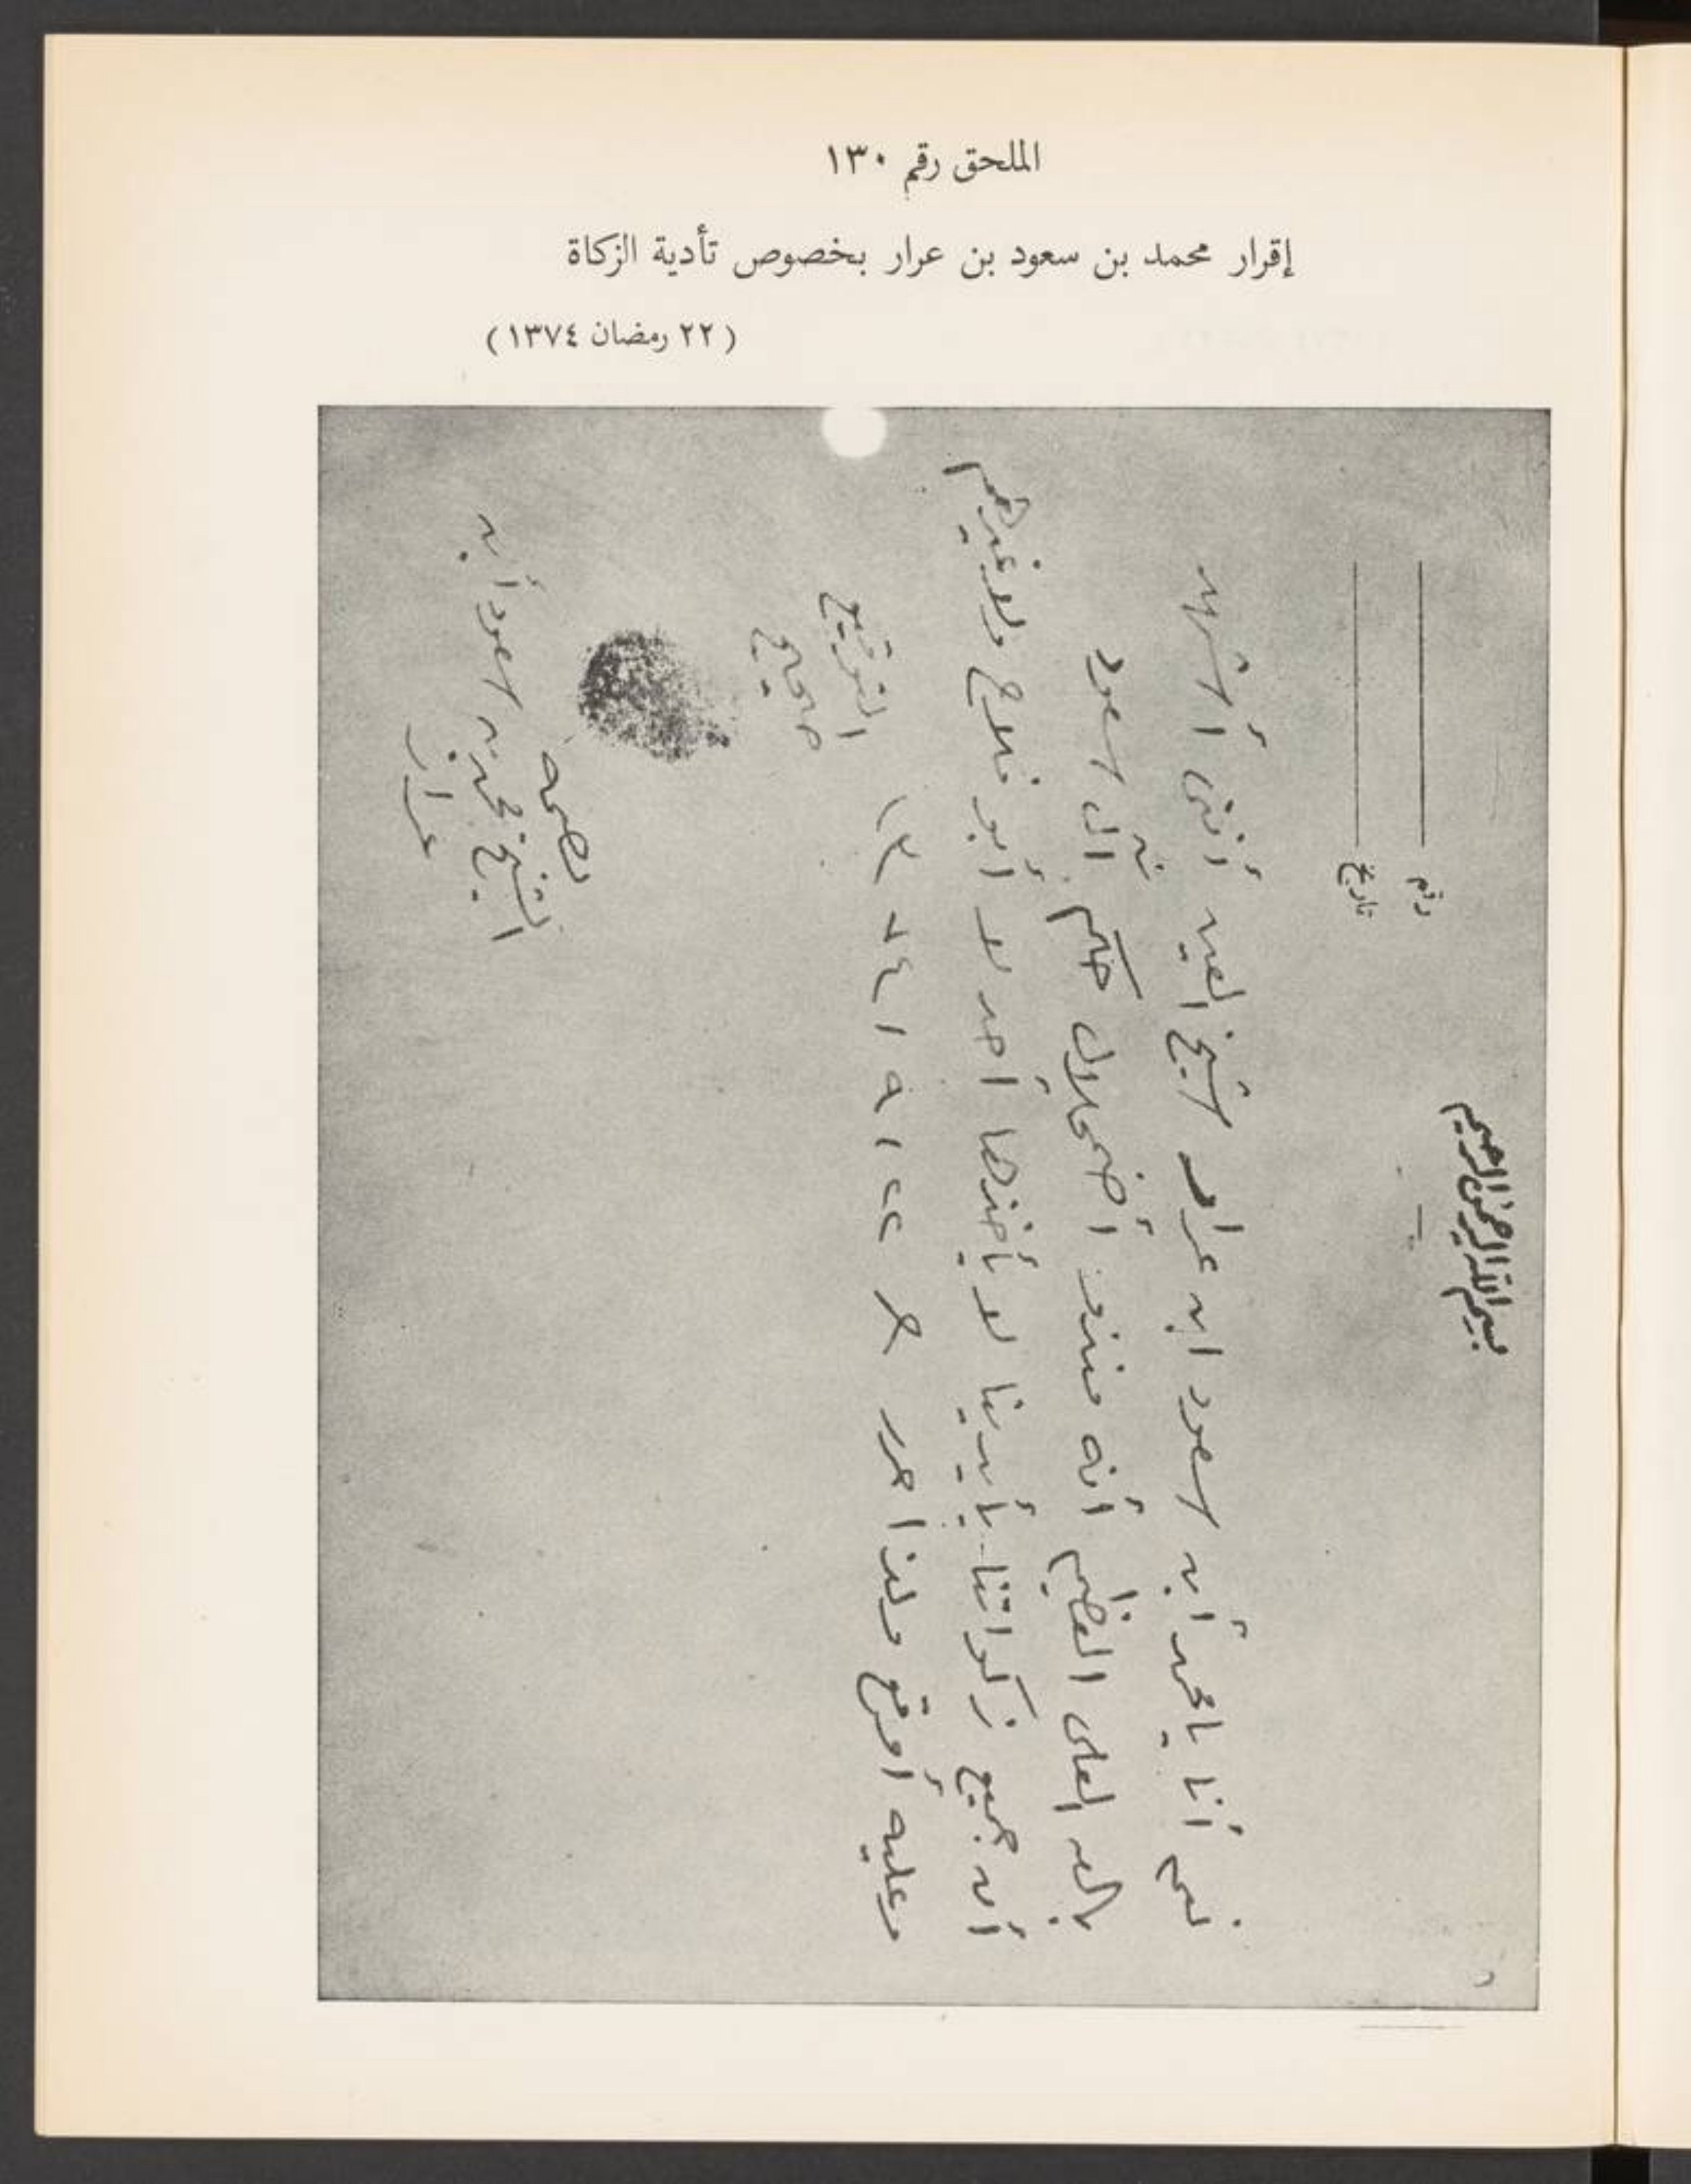 الملحق رقم ١٣٠
إقرار محمد بن سعود بن عرار بخصوص تأدية الزكاة
( ٢٢ رمضان ١٣٧٤ )
بسم الله الرحمن الرحيم
رقم
تاريخ
نعم أنا يا محمد أبن سعود ابن عرار شيخ العين أنني أشهد
بالله العلى العظيم أنه منذ أضمحلال حكم آل سعود
أن جميع زكواتنا بأيدينا لا يأخذها أحد لا أبو فلاح ولا غيرهم
وعليه أوقع ولذا حرر ٢٢ / ٩ / ١٣٧٤
التوقيع
صحيح
بصمة
الشيخ محمد بن سعود أبن
عرار